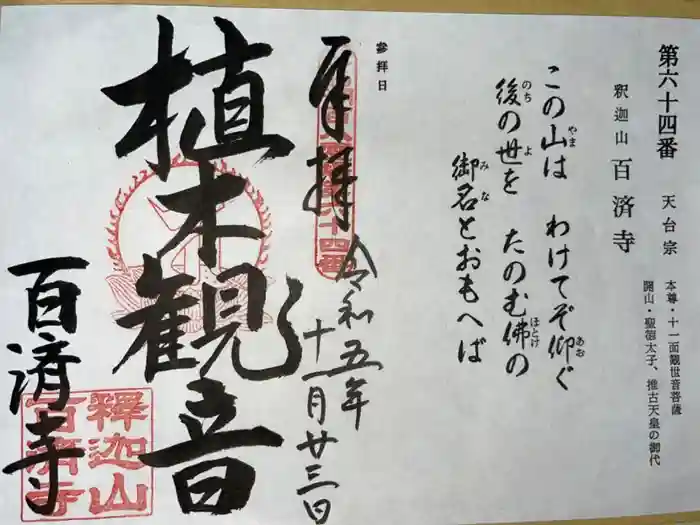 第六十四番 天台宗
本尊・十一面観世音菩薩
開山・聖徳太子、推古天皇の御代
釈迦山 百済寺
この山は わけてぞ仰ぐ
やま
あお
後の世を たのむ佛の
のち
よ
ほとけ
御名とおもへば
みな
参拝日
奉拝
令和五年
十一月廿三日
植木観音
百済寺
釋迦山
百済寺